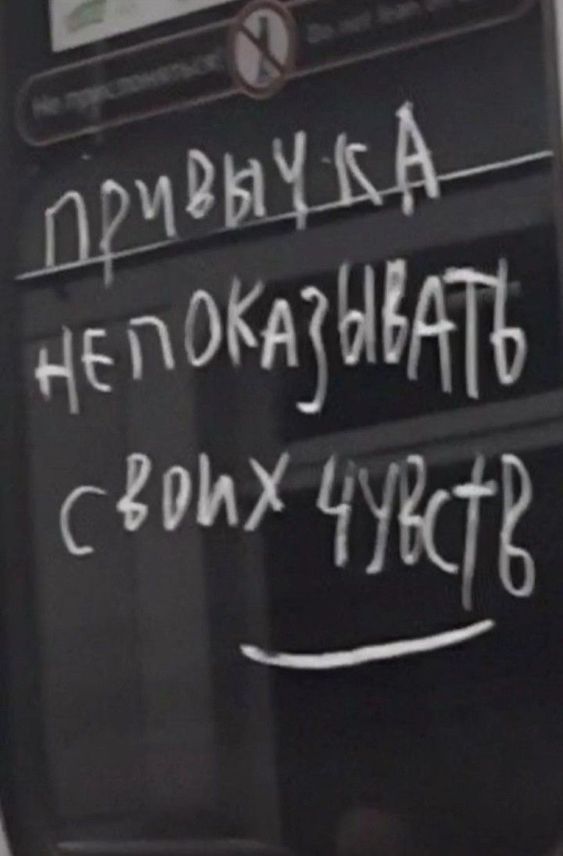 Не прислоняться! Do not lean on
ПРИВЫЧКА
НЕПОКАЗЫВАТЬ
СВОИХ ЧУВСТВ